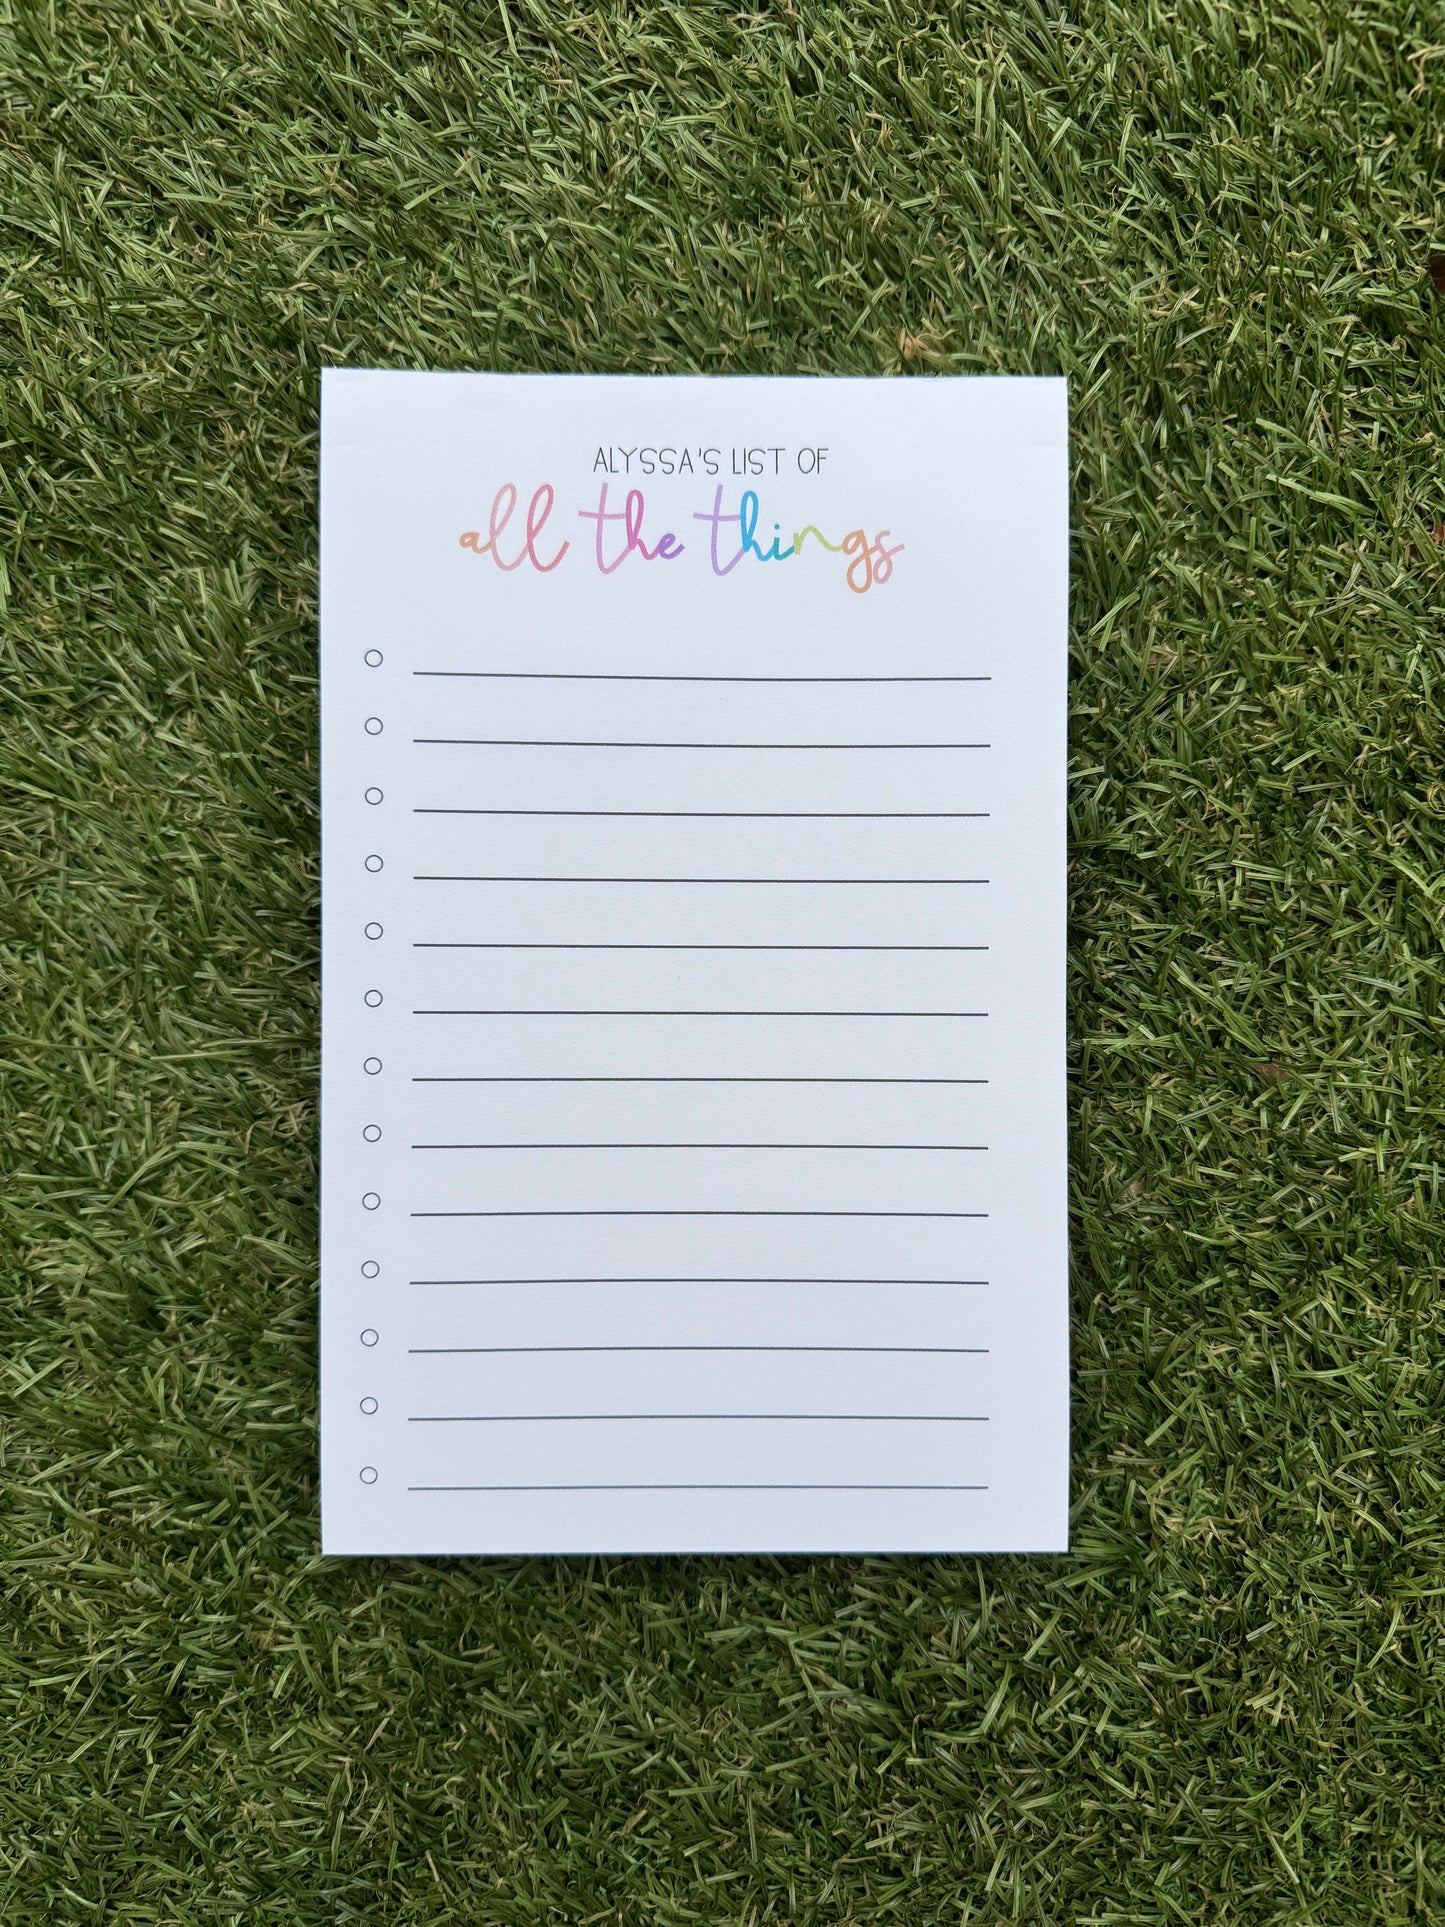 ALYSSA'S LIST OF
all the things